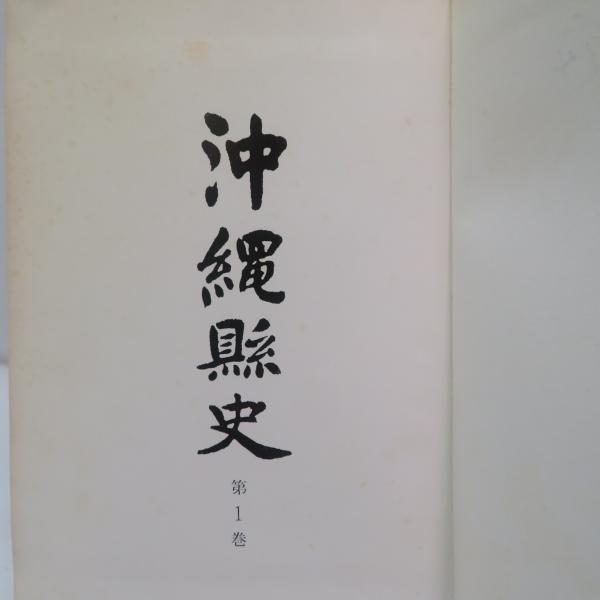 沖縄縣史
第1巻